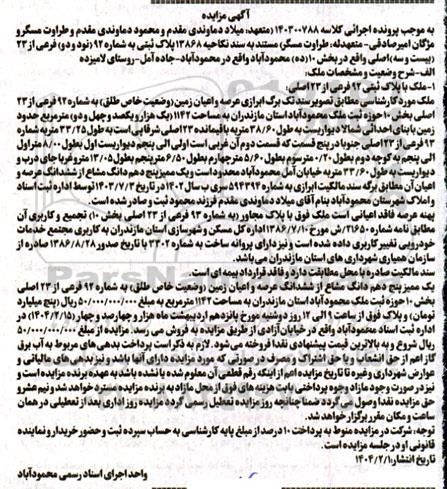 آگهی مزایده
به موجب پرونده اجرائی کلاسه ۱۴۰۳۰۰۷۸۸ (متعهد: میلاد دماوندی مقدم و محمود دماوندی مقدم و طراوت مسگر و
مژگان امیرصادقی- متعهدله: طراوت مسگر) مستند به سند نکاحیه ۱۳۸۶۸ پلاک ثبتی به شماره ۹۲ (نود و دو) فرعی از ۲۳
(بیست و سه) اصلی واقع در بخش ۱۰ (ده) محمودآباد واقع در محمودآباد-جاده آمل-روستای لامیزده
الف-شرح وضعیت و مشخصات ملک:
۱-ملک با پلاک ثبتی ۹۲ فرعی از ۲۳ اصلی:
ملک مورد کارشناسی مطابق تصویر سند تک برگ ابرازی عرصه و اعیان زمین (وضعیت خاص طلق) به شماره ۹۲ فرعی از ۲۳
اصلی بخش ۱۰ حوزه ثبت ملک محمودآباد استان مازندران به مساحت ۱۱۴۲ (یک هزار و یکصد و چهل و دو) مترمربع حدود
زمین با بنای احداثی شمالا دیواریست به طول ۳۸/۶۰ متر به باقیمانده ۲۳ اصلی شرقا پی است به طول ۳۳/۲۵ متر به شماره
۹۳ فرعی از ۲۳ اصلی جنوبا در پنج قسمت که قسمت دوم آن غربی است اولی الی پنجم دیواریست اول بطول ۸/۰۰ متر اول
الی پنجم به کوچه دوم بطول ۰/۲۰ متر سوم بطول ۵/۶۰ متر چهارم بطول ۶/۵۰ متر پنجم بطول ۱۳/۰۵ متر و غربا جای درب و
دیواریست به طول ۳۳/۶۰ متر به خیابان آمل محمودآباد محدود است و یک ممیز پنج دهم دانگ مشاع از ششدانگ عرصه و
اعیان آن مطابق برگه سند مالکیت ابرازی به شماره ۵۹۴۳۹۲ سری ب سال ۴۰۲ در تاریخ ۱۴۰۳/۷/۳ توسط اداره ثبت اسناد
و املاک شهرستان محمودآباد بنام آقای میلاد دماوندی مقدم فرزند محمود ثبت و صادر شده است.
پهنه عرصه فاقد اعیانی است ملک فوق با پلاک مجاور (به شماره ۹۳ فرعی از ۲۳ اصلی بخش ۱۰) تجمیع و کاربری آن
مطابق نامه شماره ۲۱۶۵۰/ش مورخ ۱۳۸۶/۷/۱۰ اداره کل مسکن و شهرسازی استان مازندران به کاربری مجتمع خدمات
خودرویی تغییر کاربری داده شده است و نیز دارای پروانه ساخت به شماره ۳۳۰۲ با تاریخ صدور ۱۳۸۶/۸/۲۸ صادره از
سازمان همیاری شهرداری های استان مازندران می باشد.
سند مالکیت صادره با محل مطابقت دارد و فاقد قرارداد بیمه ای است.
یک ممیز پنج دهم دانگ مشاع از ششدانگ عرصه و اعیان زمین (وضعیت خاص طلق) به شماره ۹۲ فرعی از ۲۳ اصلی
بخش ۱۰ حوزه ثبت ملک محمودآباد استان مازندران به مساحت ۱۱۴۲ مترمربع به مبلغ ۵۰/۰۰۰/۰۰۰/۰۰۰ ریال (پنج میلیارد
تومان) و پلاک فوق از ساعت ۹ الی ۱۲ روز دوشنبه مورخ پانزدهم اردیبهشت ماه هزار و چهارصد و چهار (۱۴۰۴/۲/۱۵) در
اداره ثبت اسناد محمودآباد واقع در خیابان آزادی از طریق مزایده به فروش می رسد. مزایده از مبلغ ۵۰/۰۰۰/۰۰۰/۰۰۰
ریال شروع و به بالاترین قیمت پیشنهادی نقدا فروخته می شود. لازم به ذکر است پرداخت بدهی های مربوط به آب برق
گاز اعم از حق انشعاب و یا حق اشتراک و مصرف در صورتی که مورد مزایده دارای آنها باشد و نیز بدهی های مالیاتی و
عوارض شهرداری و غیره تا تاریخ مزایده اعم از اینکه رقم قطعی آن معلوم شده یا نشده باشد به عهده برنده مزایده است و
نیز در صورت وجود مازاد وجوه پرداختی بابت هزینه های فوق از محل مازاد به برنده مزایده مسترد خواهد شد و نیم عشر و
حق مزایده نقدا وصول می گردد ضمنا چنانچه روز مزایده تعطیل رسمی گردد مزایده روز اداری بعد از تعطیلی در همان
ساعت و مکان مقرر برگزار خواهد شد.
توجه: شرکت در مزایده منوط به پرداخت ۱۰ درصد از مبلغ پایه کارشناسی به حساب سپرده ثبت و حضور خریدار و نماینده
قانونی او در جلسه مزایده است.
تاریخ انتشار: ۱۴۰۴/۲/۱
واحد اجرای اسناد رسمی محمودآباد